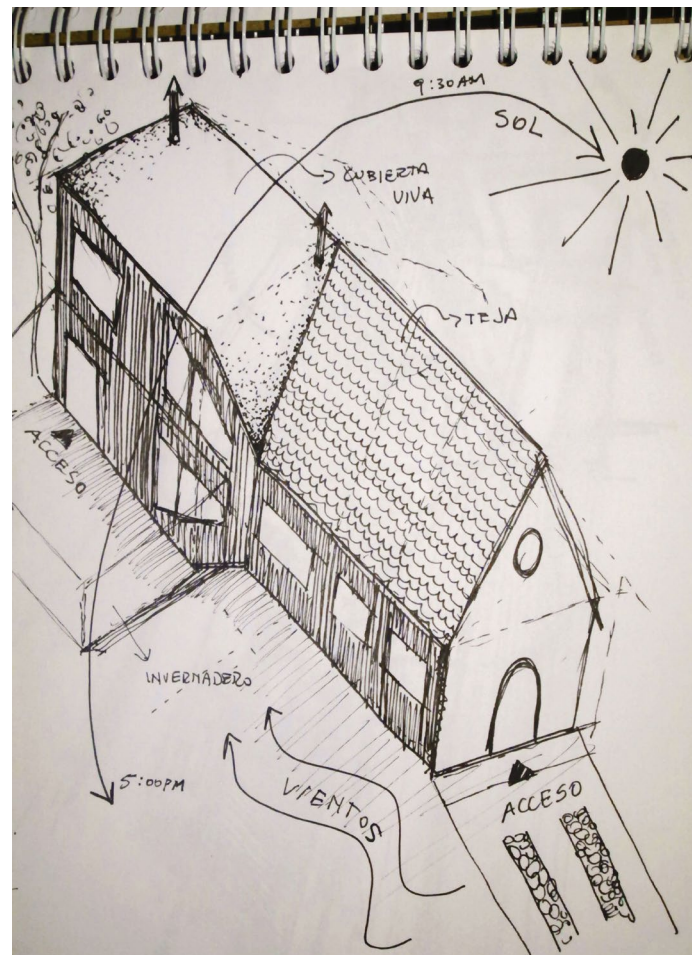 9:30AM
SOL
CUBIERTA
VIVA
TEJA
ACCESO
INVERNADERO
5:00PM
VIENTOS
ACCESO